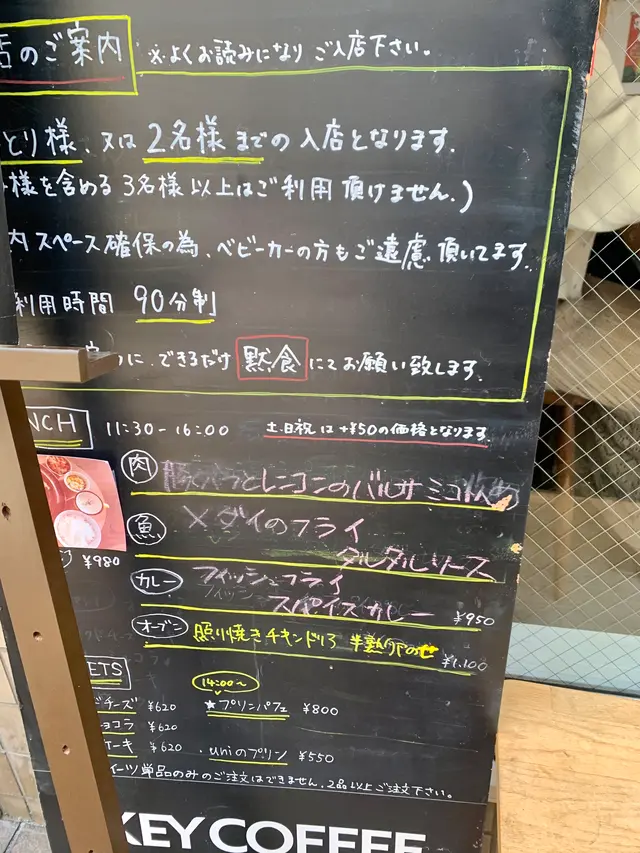 店のご案内 ※よくお読みになり ご入店下さい。
とり様、又は 2名様までの入店となります。
様を含める 3名様以上はご利用頂けません。)
内スペース確保の為、ベビーカーの方もご遠慮頂いてます。
利用時間 90分制
に、できるだけ 黙食 にてお願い致します。
NCH 11:30-16:00 土日祝は+¥50の価格となります
肉 豚バラとレンコンのバルサミコ炒め
魚 メダイのフライ
タルタルソース
¥980
カレー フィッシュフライ
スパイスカレー ¥950
オーブン 照り焼きチキンドリア 半熟卵のせ
¥1,100
ETS 14:00〜
チーズ ¥620 ★プリンパフェ ¥800
ョコラ ¥620
ケーキ ¥620 ・uniのプリン ¥550
イーツ単品のみのご注文はできません。2品以上ご注文下さい。
KEY COFFEE